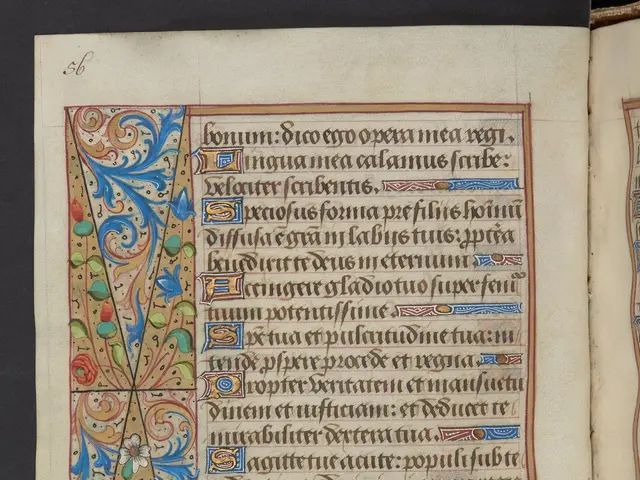 56
bonum: dico ego opera mea regi.
Lingua mea calamus scribe:
velociter scribentis.
Speciosus forma pre filiis hominũ
diffusa ẽ grãm labiis tuis: ꝓptẽa
benedixit te deus in eternum
Accingere gladio tuo super femᷓ
tuum potentissime
Spẽ tua et pulcritudine tua: in
tende ꝓspere procede et regna
Propter veritatem et mansuetu
dinem et iusticiam: et deducet te
mirabiliter dextera tua.
Sagitte tue acute: populi sub te